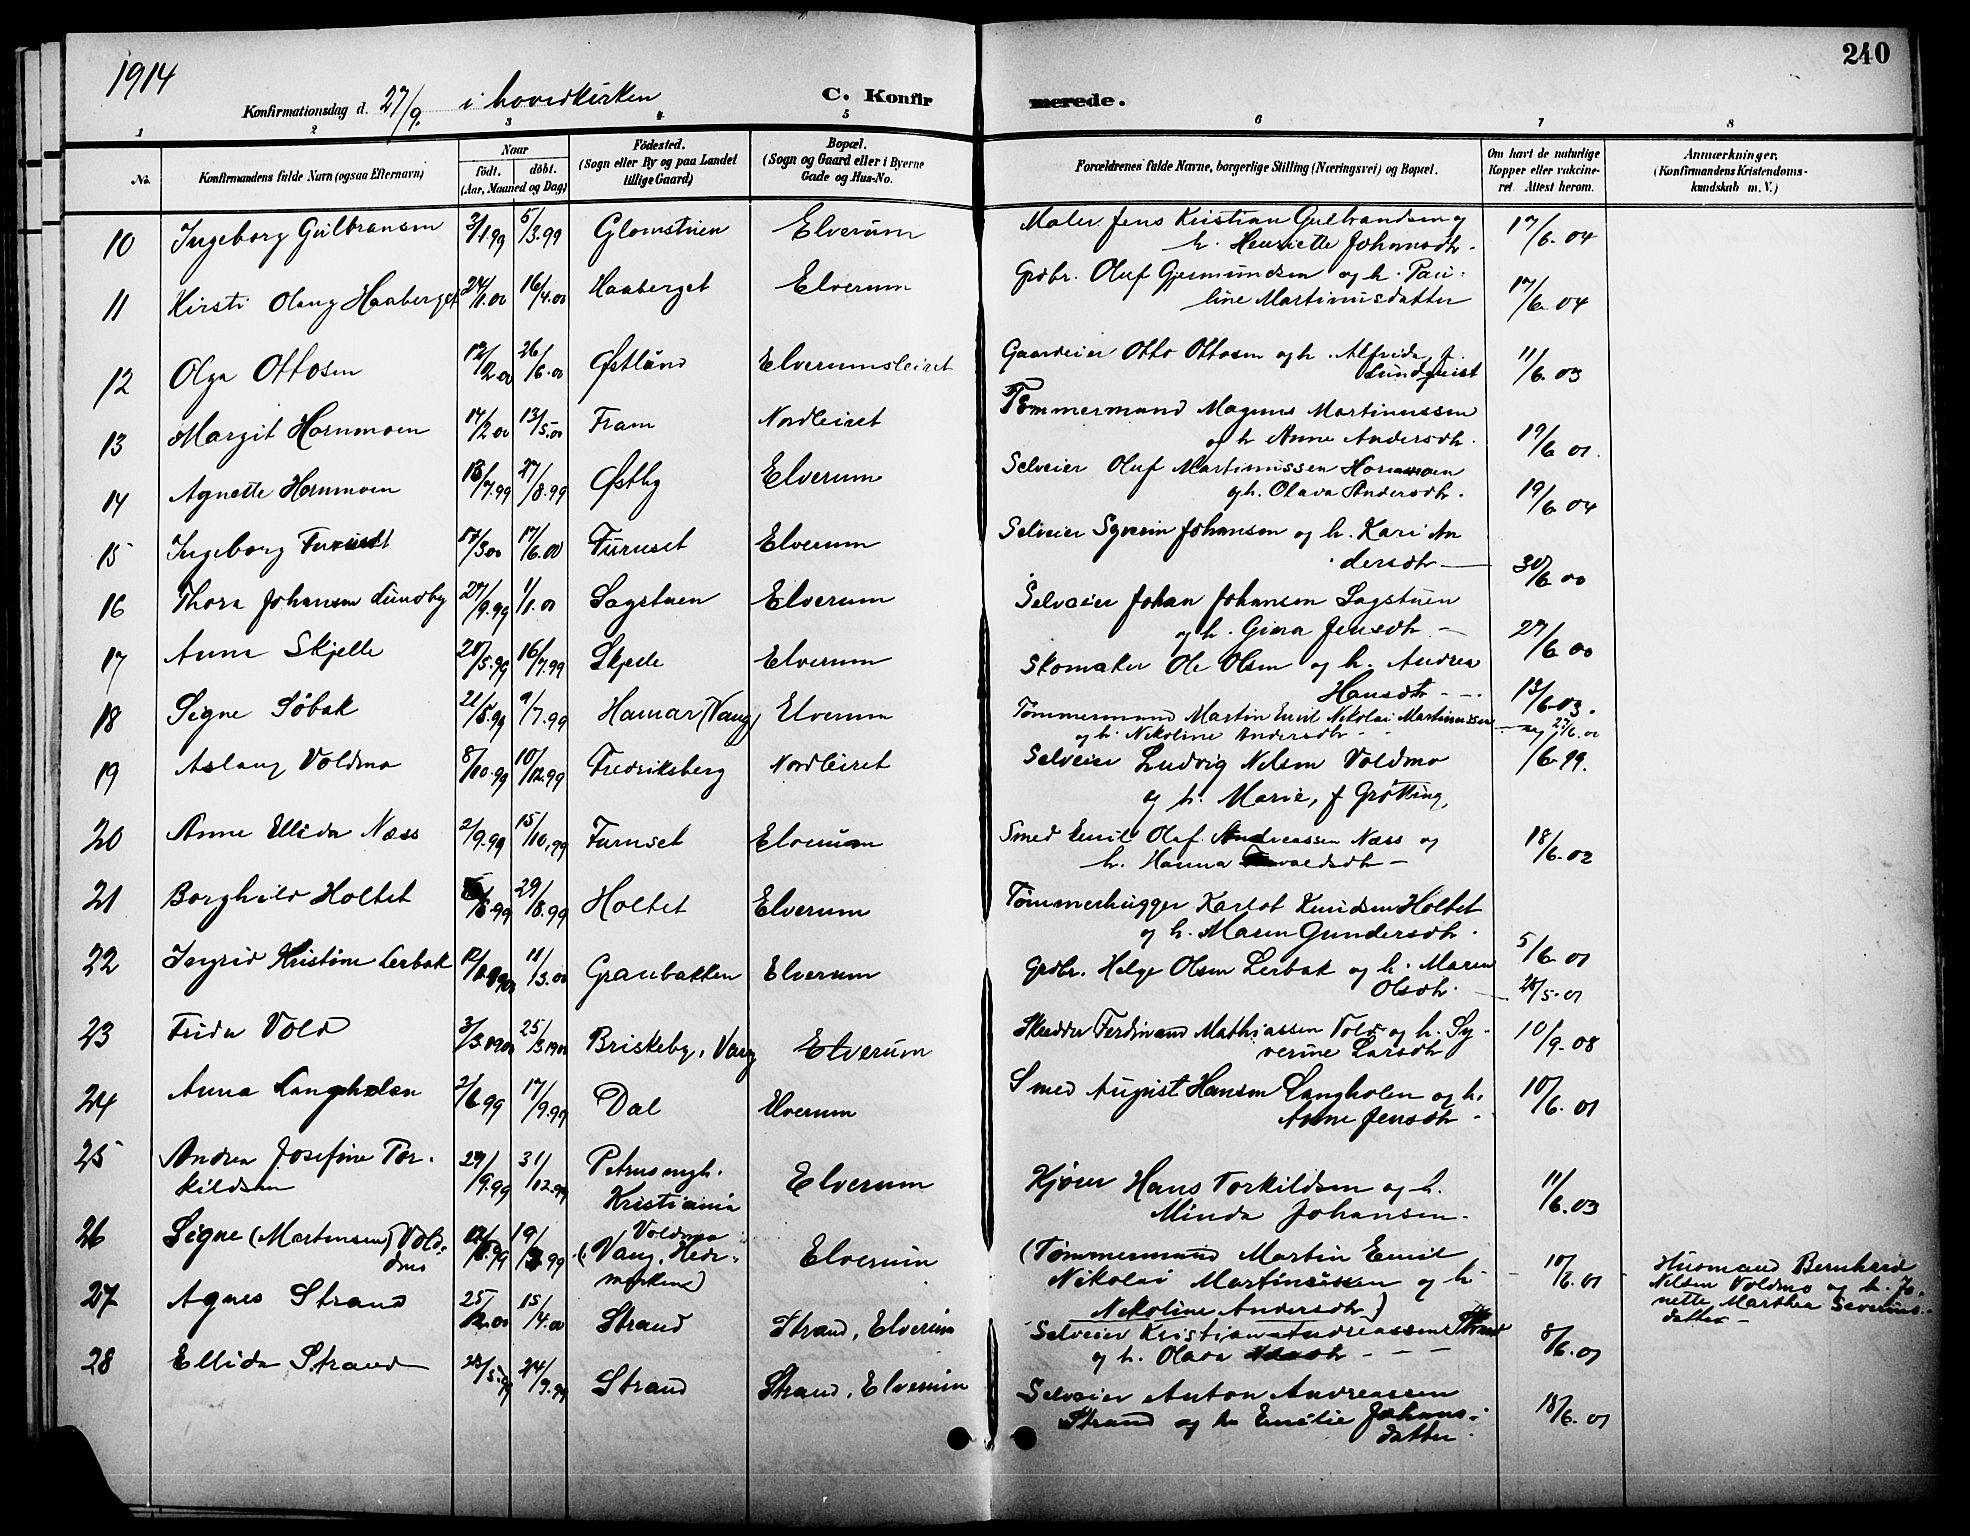 240
1914
Konfirmationsdag d. 27/9. i hovedkirken
C. Konfirmerede.
1 2 3 4 5 6 7 8
No. Konfirmandens fulde Navn (ogsaa Efternavn) Naar födt. döbt. (Aar, Maaned og Dag) Födested. (Sogn eller By og paa Landet tillige Gaard) Bopæl. (Sogn og Gaard eller i Byerne Gade og Hus-No. Forældrenes fulde Navne, borgerlige Stilling (Næringsvei) og Bopæl. Om havt de naturlige Kopper eller vakcineret. Attest herom. Anmærkninger. (Konfirmandens Kristendomskundskab m. V.)
10 Ingeborg Gulbransen 3/1.99 5/3.99 Glomstuen Elverum Maler Jens Kristian Gulbrandsen og
h. Henriette Johansdtr. 17/6.04
11 Kirsti Olaug Haaberget 24/1.00 16/4.00 Haaberget Elverum Grdbr. Oluf Gjermundsen og h. Pau-
line Martinusdatter 17/6.04
12 Olga Ottosen 12/2.00 26/6.00 Østlund Elverumsleiret Gaardeier Otto Ottosen og h. Alfrida f.
Lundquist 11/6.03
13 Margit Hornmoen 14/2.00 13/5.00 Fram Nordleiret Tømmermand Magnus Martinussen
og h Anne Andersdtr. 19/6.01.
14 Agnette Hornmoen 18/7.99 27/8.99 Østby Elverum Selveier Oluf Martinussen Hornmoen
og h. Olava Andersdtr. 19/6.04
15 Ingeborg Furuset 17/3.00 17/6.00 Furuset Elverum Selveier Syverin Johansen og h. Kari An
dersdtr 30/6.00
16 Thora Johansen Lundby 27/9.99 1/1.00 Sagstuen Elverum Selveier Johan Johansen Sagstuen
og h. Gina Jensdtr 27/6.00
17 Anna Skjelle 28/5.99 16/7.99 Skjelle Elverum Skomaker Ole Olsen og h. Andrea
Hansdtr 13/6.03.
18 Signe Søbak 21/5.99 9/7.99 Hamar (Vang) Elverum Tømmermand Martin Emil Nikolai Martinussen
og h. Nikoline Andersdtr 27/6.01
19 Aslaug Voldmo 8/10.99 10/12.99 Fredriksberg Nordleiret Selveier Ludvig Nilsen Voldmo
og h. Marie, f Grøtting, /6.99.
20 Anne Ellida Næss 2/9.99 15/10.99 Furuset Elverum Smed Emil Olaf Andreassen Næss og
h. Hanna 18/6.02
21 Borghild Holtet /6.99 29/8.99 Holtet Elverum Tømmerhugger Karlot Knudsen Holtet
og h. Maren Gundersdtr. 5/6.01
22 Ingrid Kristine Lerbak 11/3.00 Graubakken Elverum Grdbr. Helge Olsen Lerbak og h. Maren
Olsdtr. 28/5.01
23 Frida Vold 3/3.1900 25/3.1900 Briskeby, Vang Elverum Skrædder Ferdinand Mathiassen Vold og h. Sy-
verine Larsdtr 10/9.08
24 Anna Langholen 2/6.99 17/9.99 Dal Elverum Smed August Hansen Langholen og h.
Anne Jensdtr 10/6.01
25 Andrea Josefine Tor-
kildsen 29/9.99 31/12.99 Petrusmgh.
Kristiania Elverum Kjører Hans Torkildsen og h.
Minda Johansen. 11/6.03
26 Signe (Martensen) Vold-
mo 19/ .99 Voldmoa
(Vang, Hede-
marken) Elverum (Tømmermand Martin Emil
Nikolai Martinussen og h
Nikoline Andersdtr) 10/6.01 Husmand Bernhard
Nilsen Voldmo og h. Jo-
nette Marthea Severins-
datter
27 Agnes Strand 25/2.00 15/4.00 Strand Strand, Elverum Selveier Kristian Andreassen Strand
og h. Olava 8/6.01
28 Ellida Strand 28/5.99 24/9.99 Strand Strand, Elverum Selveier Anton Andreassen
Strand og h Emilie Johans-
datter. 18/6.01